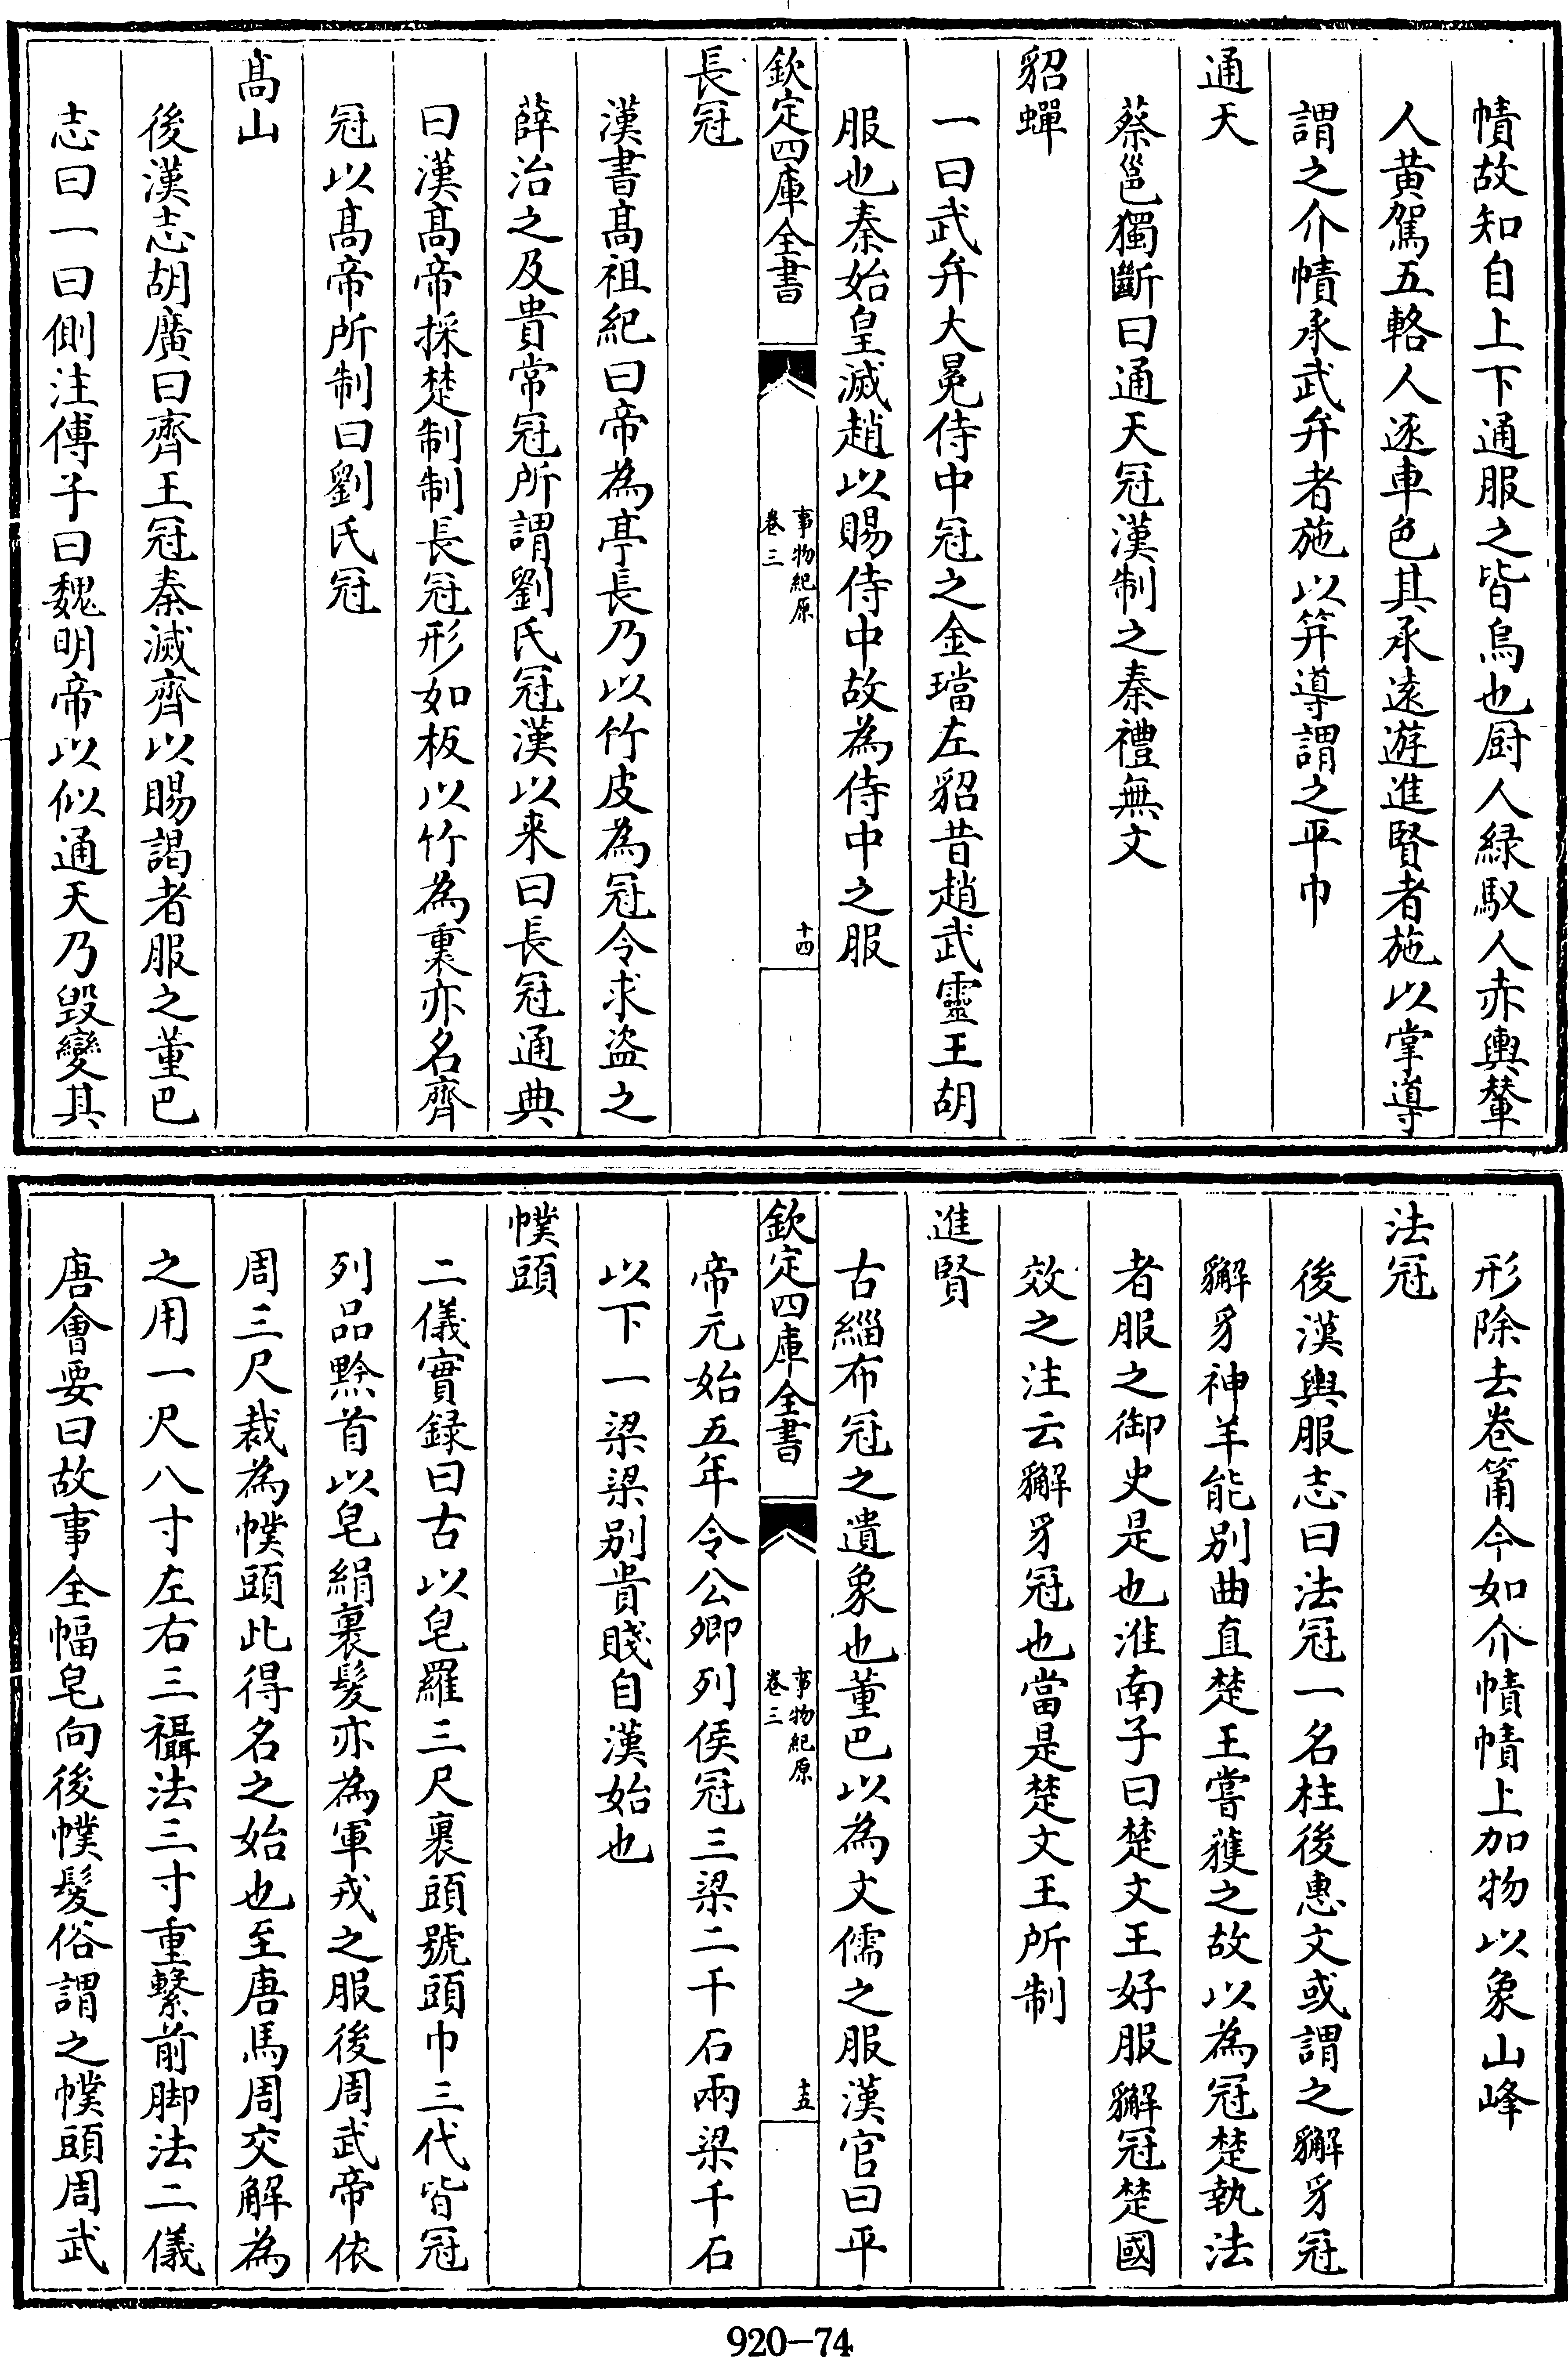 幘故知自上下通服之皆烏也厨人緑馭人赤輿輦
人黄駕五輅人逐車色其承逺遊進賢者施以掌導
謂之介幘承武弁者施以笄導謂之平巾
通天
蔡邕獨斷曰通天冠漢制之秦禮無文
貂蟬
一曰武弁大冕侍中冠之金璫左貂昔趙武靈王胡
服也秦始皇滅趙以賜侍中故為侍中之服
欽定四庫全書
事物紀原
卷三
十四
長冠
漢書髙祖紀曰帝為亭長乃以竹皮為冠令求盜之
薛治之及貴常冠所謂劉氏冠漢以来曰長冠通典
曰漢髙帝採楚制制長冠形如板以竹為裏亦名齊
冠以髙帝所制曰劉氏冠
髙山
後漢志胡廣曰齊王冠秦滅齊以賜謁者服之董巴
志曰一曰側注傅子曰魏明帝以似通天乃毀變其
形除去卷筩今如介幘幘上加物以象山峰
法冠
後漢輿服志曰法冠一名柱後惠文或謂之獬豸冠
獬豸神羊能别曲直楚王嘗獲之故以為冠楚執法
者服之御史是也淮南子曰楚文王好服獬冠楚國
效之注云獬豸冠也當是楚文王所制
進賢
古緇布冠之遺象也董巴以為文儒之服漢官曰平
欽定四庫全書
事物紀原
卷三
十五
帝元始五年令公卿列侯冠三梁二千石兩梁千石
以下一梁梁别貴賤自漢始也
幞頭
二儀實録曰古以皂羅三尺裹頭號頭巾三代皆冠
列品黔首以皂絹裹髮亦為軍戎之服後周武帝依
周三尺裁為幞頭此得名之始也至唐馬周交解為
之用一尺八寸左右三襵法三寸重繫前脚法二儀
唐會要曰故事全幅皂向後幞髮俗謂之幞頭周武
920-74